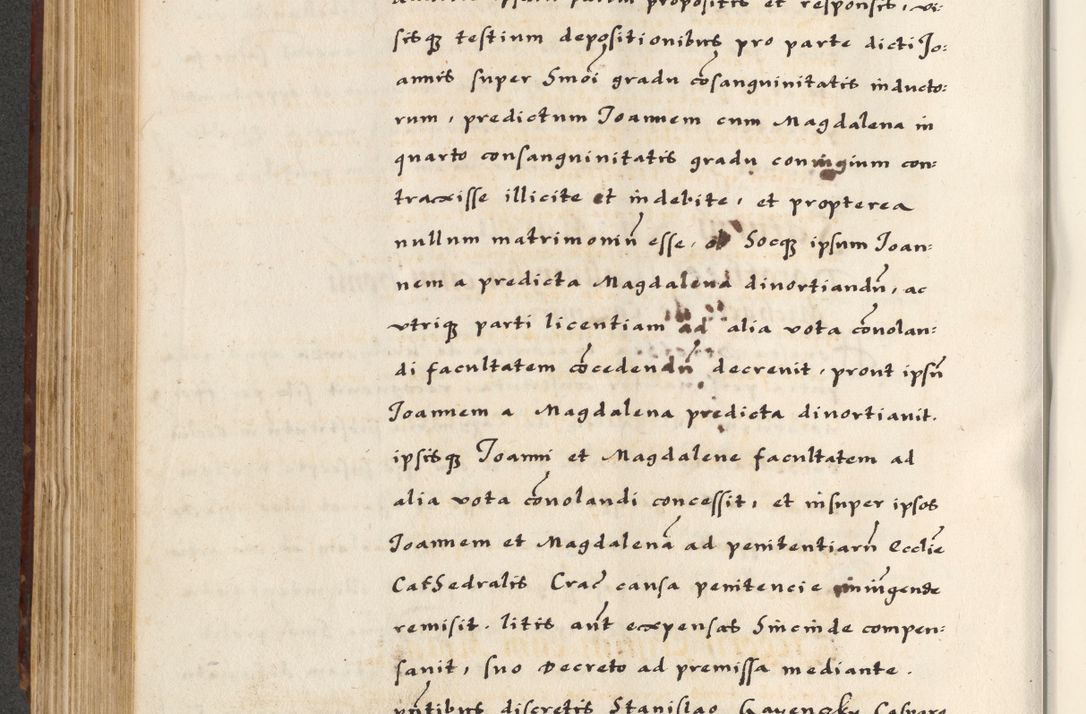 partem propositis et responsis, vi-
sisq testium depositionibus pro parte dicti Jo:
annis super hmoi gradu cosanguinitatis inducto:
rum, predictum Joannem cum Magdalena in
quarto consanguinitatis gradu coniugium con:
traxisse illicite et indebite, et propterea
nullum matrimoniu esse, hocq ipsum Joan:
nem a predicta Magdalena divortiandu, ac
utriq parti licentiam ad alia vota covolan:
di facultatem cocedendu decrevit, prout ipsu
Joannem a Magdalena predicta divortiavit.
ipsisq Joanni et Magdalene facultatem ad
alia vota covolandi concessit, et insuper ipsos
Joannem et Magdalena ad penitentiaru Ecclie
Cathedralis Crac causa penitencie iniungende
remisit. litis aut expensas hincinde compen:
savit, suo Decreto ad premissa mediante.
pntibus discretis Stanislao Gavensky Casparo